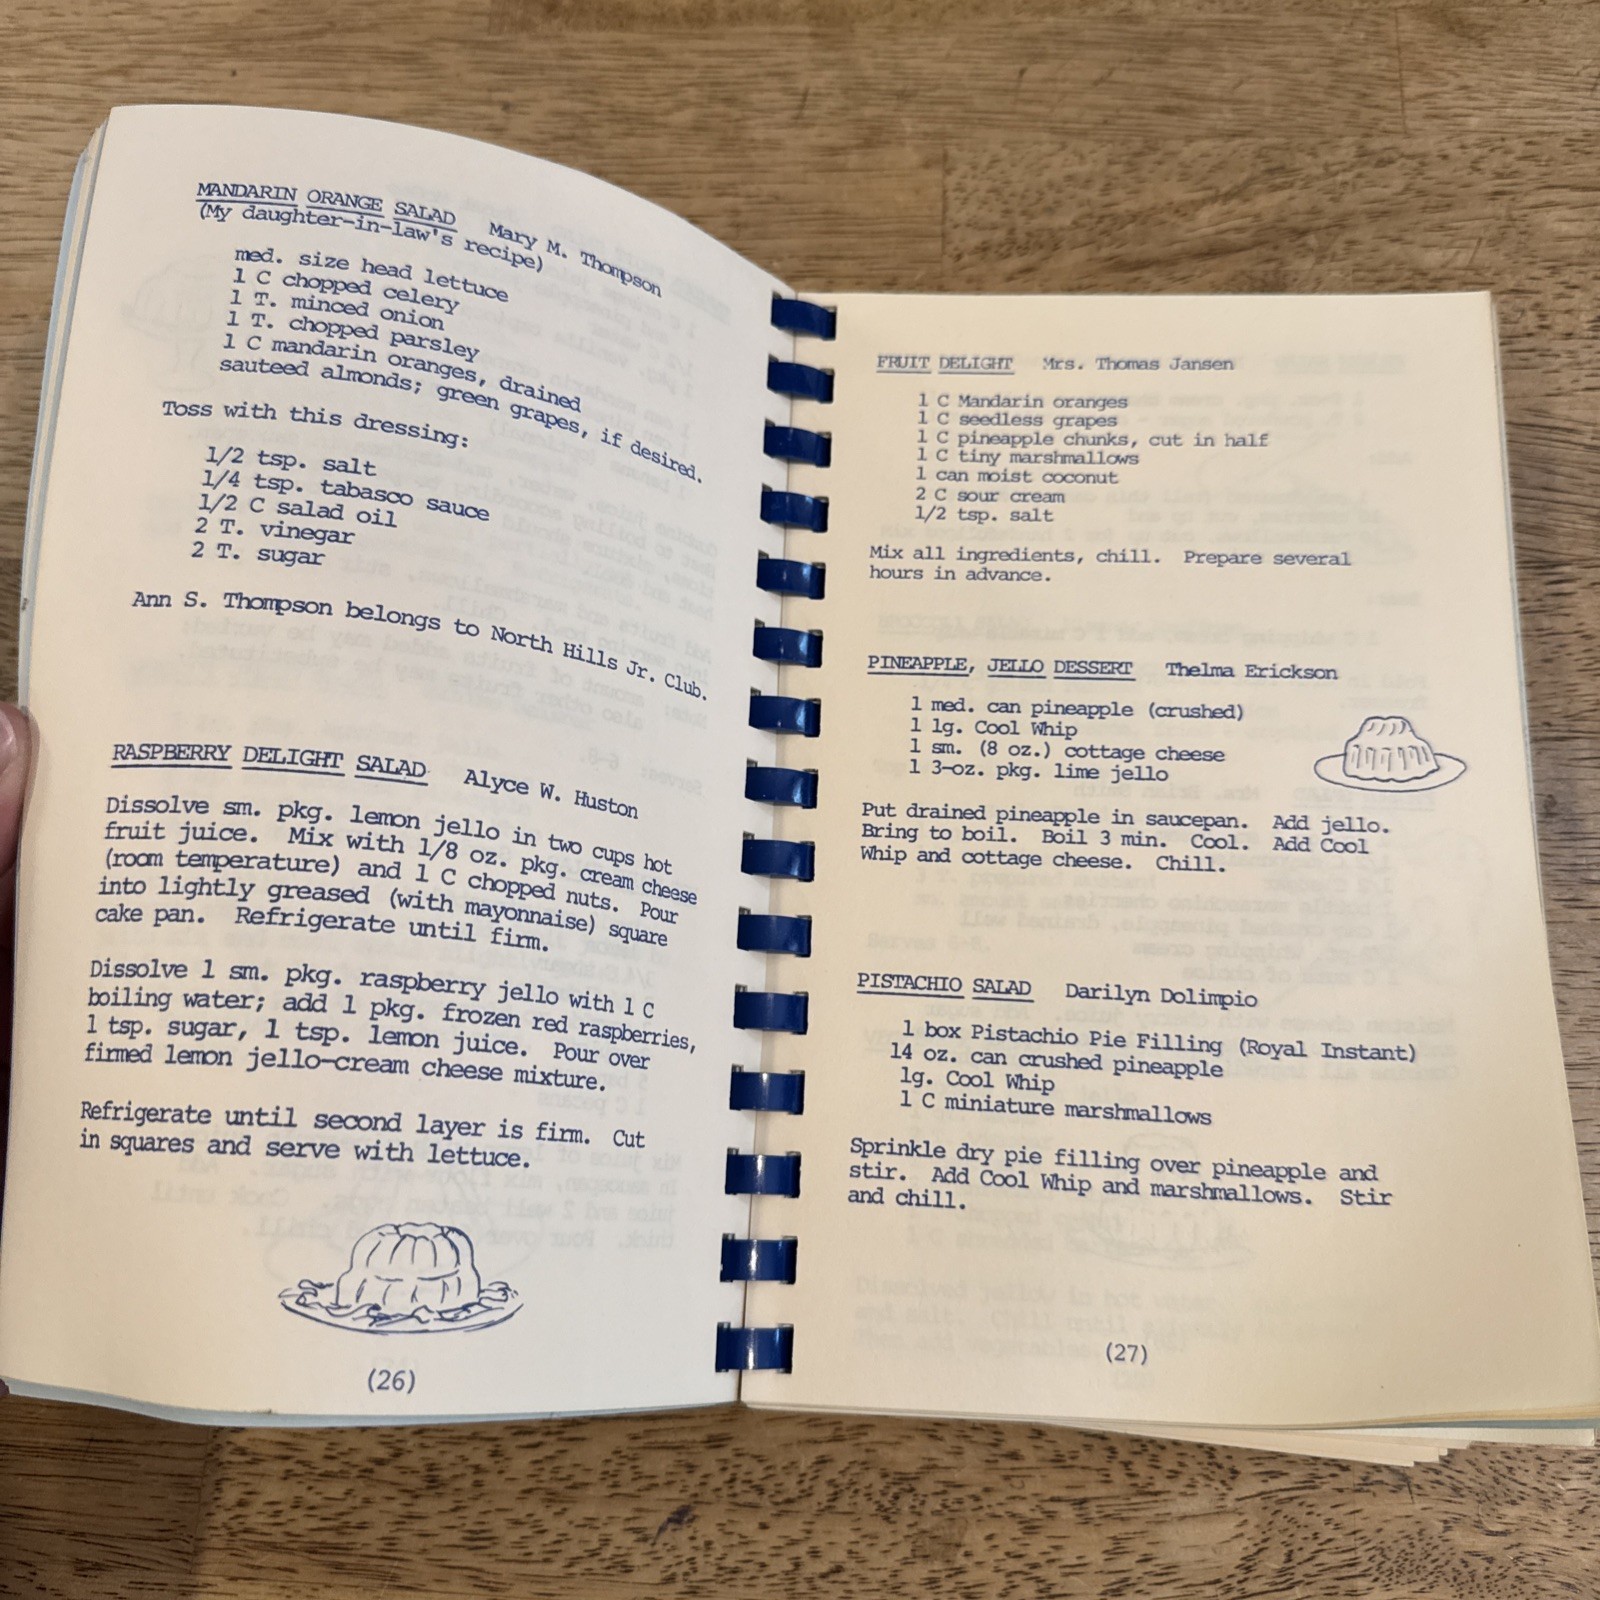 MANDARIN ORANGE SALAD Mary M. Thompson
(My daughter-in-law's recipe)
med. size head lettuce
1 C chopped celery
1 T. minced onion
1 T. chopped parsley
1 C mandarin oranges, drained
sauteed almonds; green grapes, if desired.
Toss with this dressing:
1/2 tsp. salt
1/4 tsp. tabasco sauce
1/2 C salad oil
2 T. vinegar
2 T. sugar
Ann S. Thompson belongs to North Hills Jr. Club.
RASPBERRY DELIGHT SALAD Alyce W. Huston
Dissolve sm. pkg. lemon jello in two cups hot
fruit juice. Mix with 1/8 oz. pkg. cream cheese
(room temperature) and 1 C chopped nuts. Pour
into lightly greased (with mayonnaise) square
cake pan. Refrigerate until firm.
Dissolve 1 sm. pkg. raspberry jello with 1 C
boiling water; add 1 pkg. frozen red raspberries,
1 tsp. sugar, 1 tsp. lemon juice. Pour over
firmed lemon jello-cream cheese mixture.
Refrigerate until second layer is firm. Cut
in squares and serve with lettuce.
(26)
FRUIT DELIGHT Mrs. Thomas Jansen
1 C Mandarin oranges
1 C seedless grapes
1 C pineapple chunks, cut in half
1 C tiny marshmallows
1 can moist coconut
2 C sour cream
1/2 tsp. salt
Mix all ingredients, chill. Prepare several
hours in advance.
PINEAPPLE, JELLO DESSERT Thelma Erickson
1 med. can pineapple (crushed)
1 lg. Cool Whip
1 sm. (8 oz.) cottage cheese
1 3-oz. pkg. lime jello
Put drained pineapple in saucepan. Add jello.
Bring to boil. Boil 3 min. Cool. Add Cool
Whip and cottage cheese. Chill.
PISTACHIO SALAD Darilyn Dolimpio
1 box Pistachio Pie Filling (Royal Instant)
14 oz. can crushed pineapple
lg. Cool Whip
1 C miniature marshmallows
Sprinkle dry pie filling over pineapple and
stir. Add Cool Whip and marshmallows. Stir
and chill.
(27)